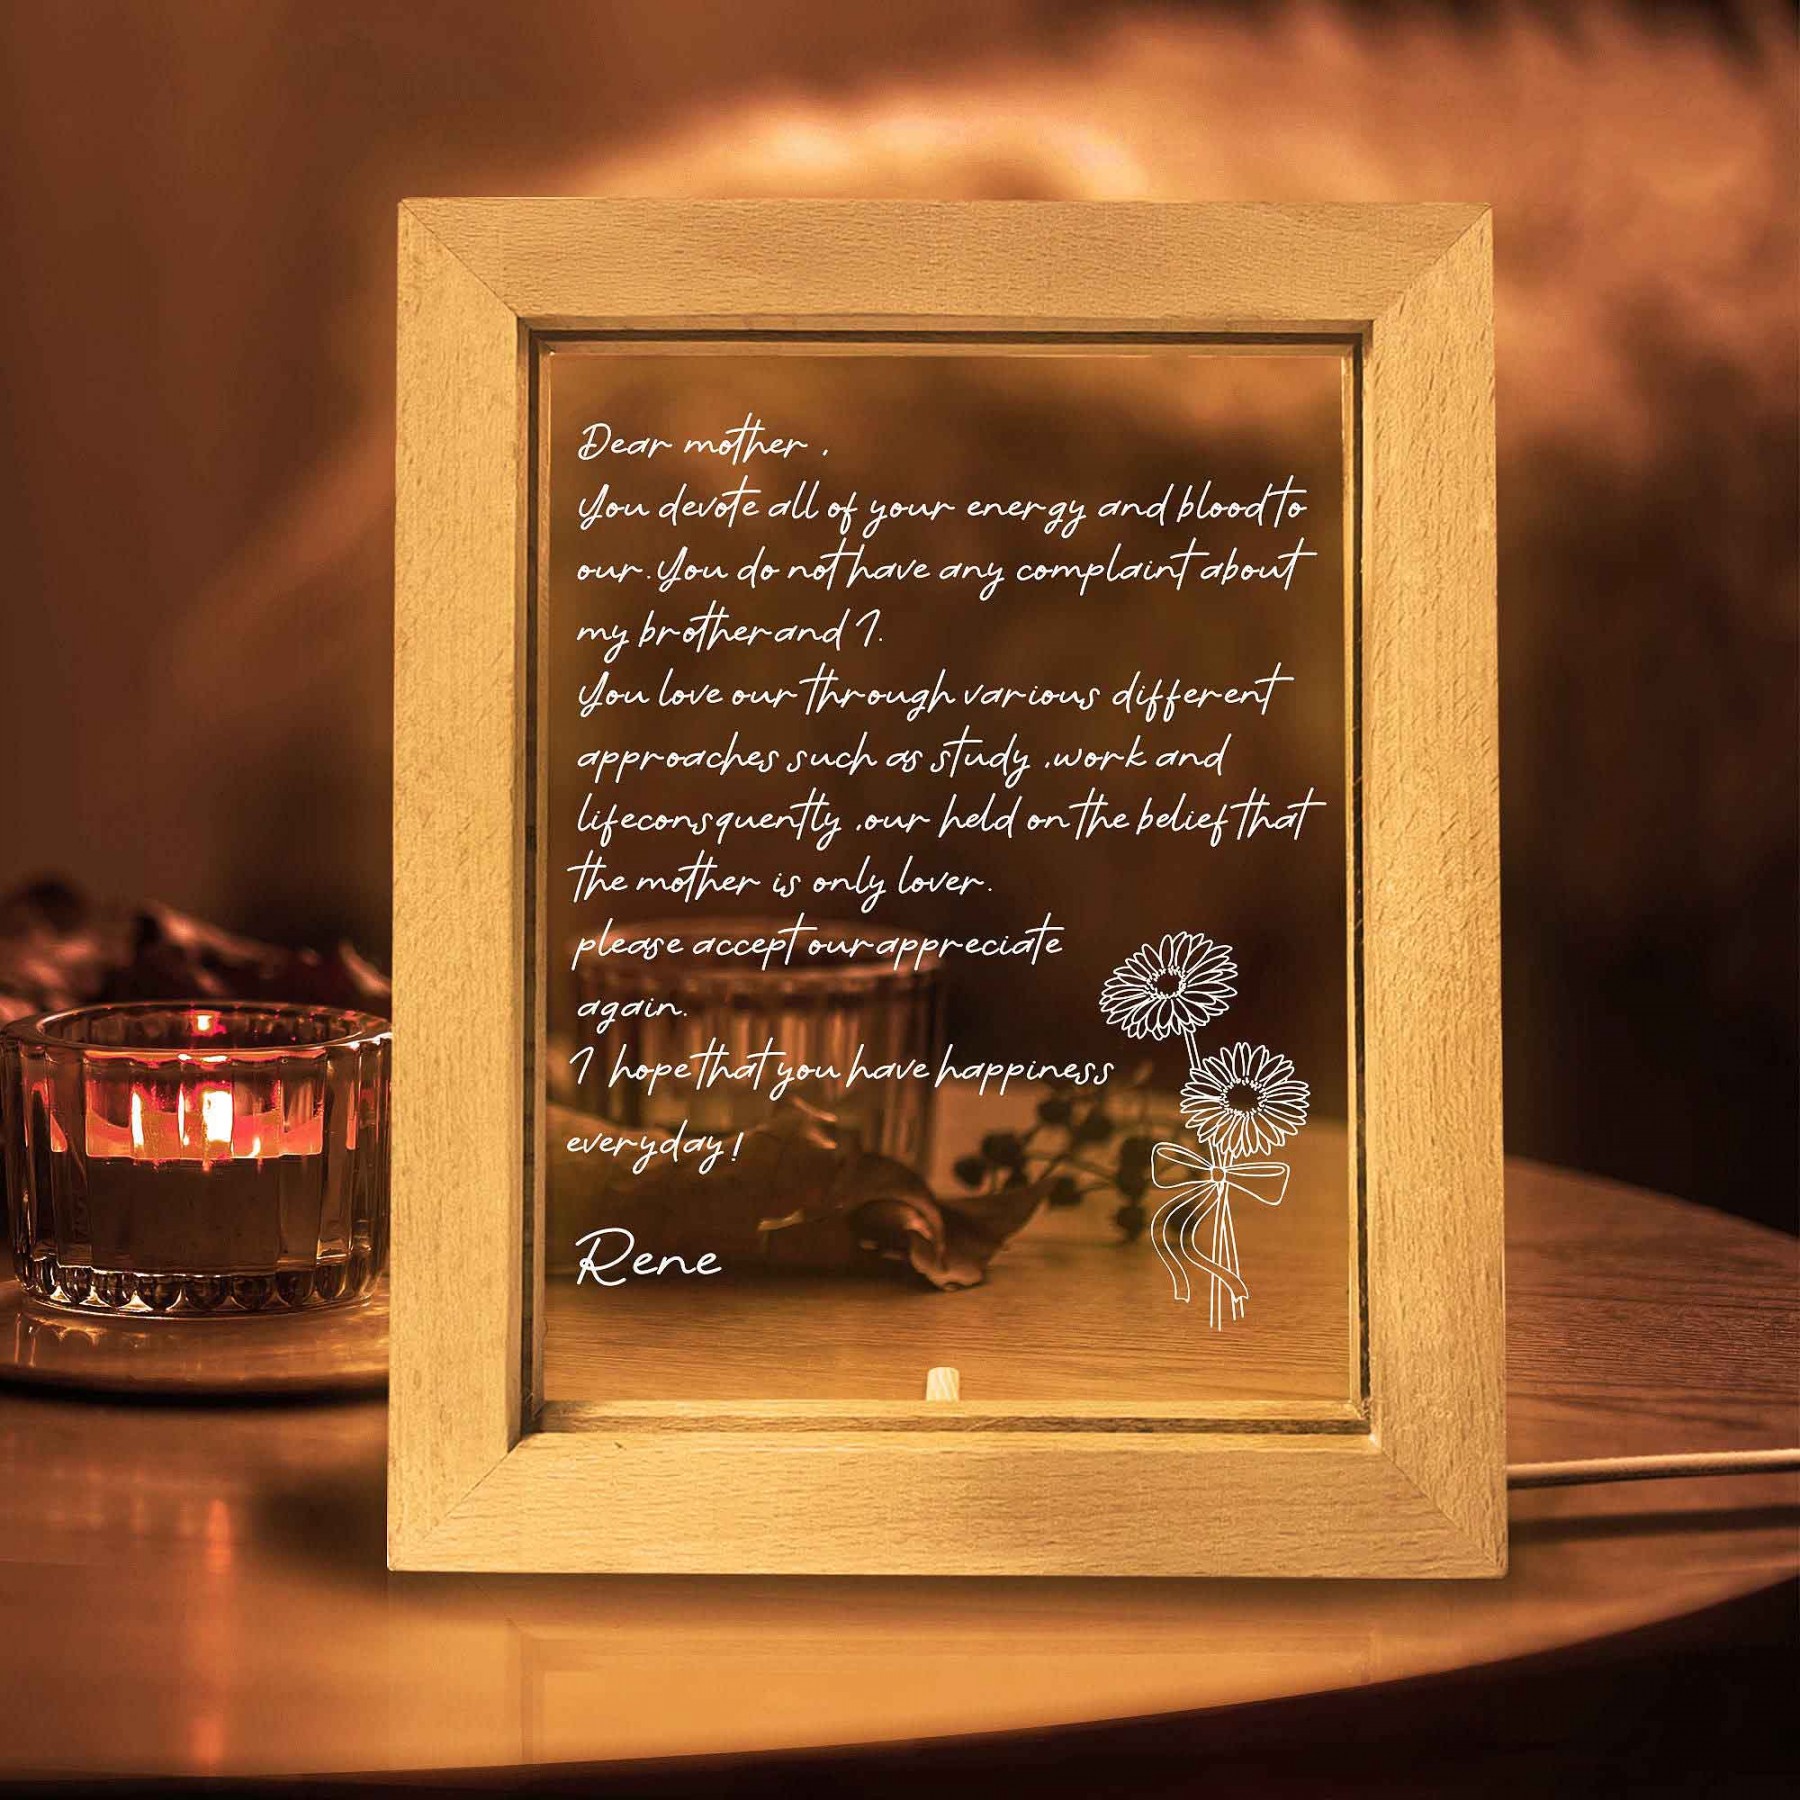 Dear mother ,
You devote all of your energy and blood to
our. You do not have any complaint about
my brother and I.
You love our through various different
approaches such as study ,work and
lifeconsquently ,our held on the belief that
the mother is only lover.
please accept our appreciate
again.
I hope that you have happiness
everyday!
Rene